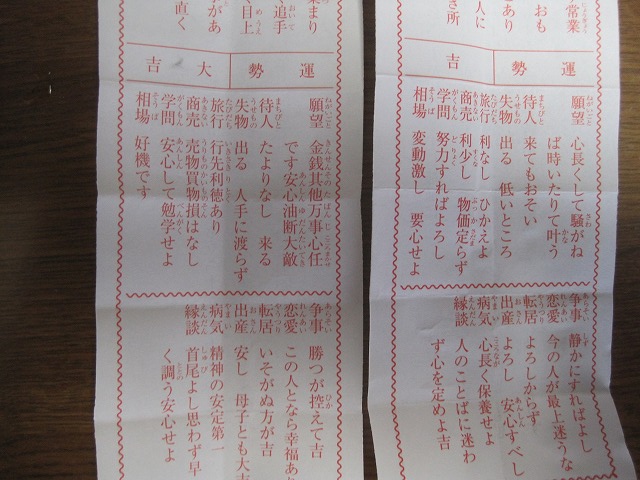 常業
おも
あり
人に
所
運勢
吉
願望 心長くして騒がね
ば時いたりて叶う
待人 来てもおそい
失物 出る 低いところ
旅行 利なし ひかえよ
商売 利少し 物価定らず
学問 努力すればよろし
相場 変動激し 要心せよ
争事 静かにすればよし
恋愛 今の人が最上迷うな
転居 よろしからず
出産 よろし 安心すべし
病気 心長く保養せよ
縁談 人のことばに迷わ
ず心を定めよ吉
まり
追手
く目上
があ
直く
運勢
大吉
願望 金銭其他万事心任
です安心油断大敵
待人 たよりなし 来る
失物 出る 人手に渡らず
旅行 行先利徳あり
商売 売物買物損はなし
学問 安心して勉学せよ
相場 好機です
争事 勝つが控えて吉
恋愛 この人となら幸福あ
転居 いそがぬ方が吉
出産 安し 母子とも大
病気 精神の安定第一
縁談 首尾よし思わず早
く調う安心せよ